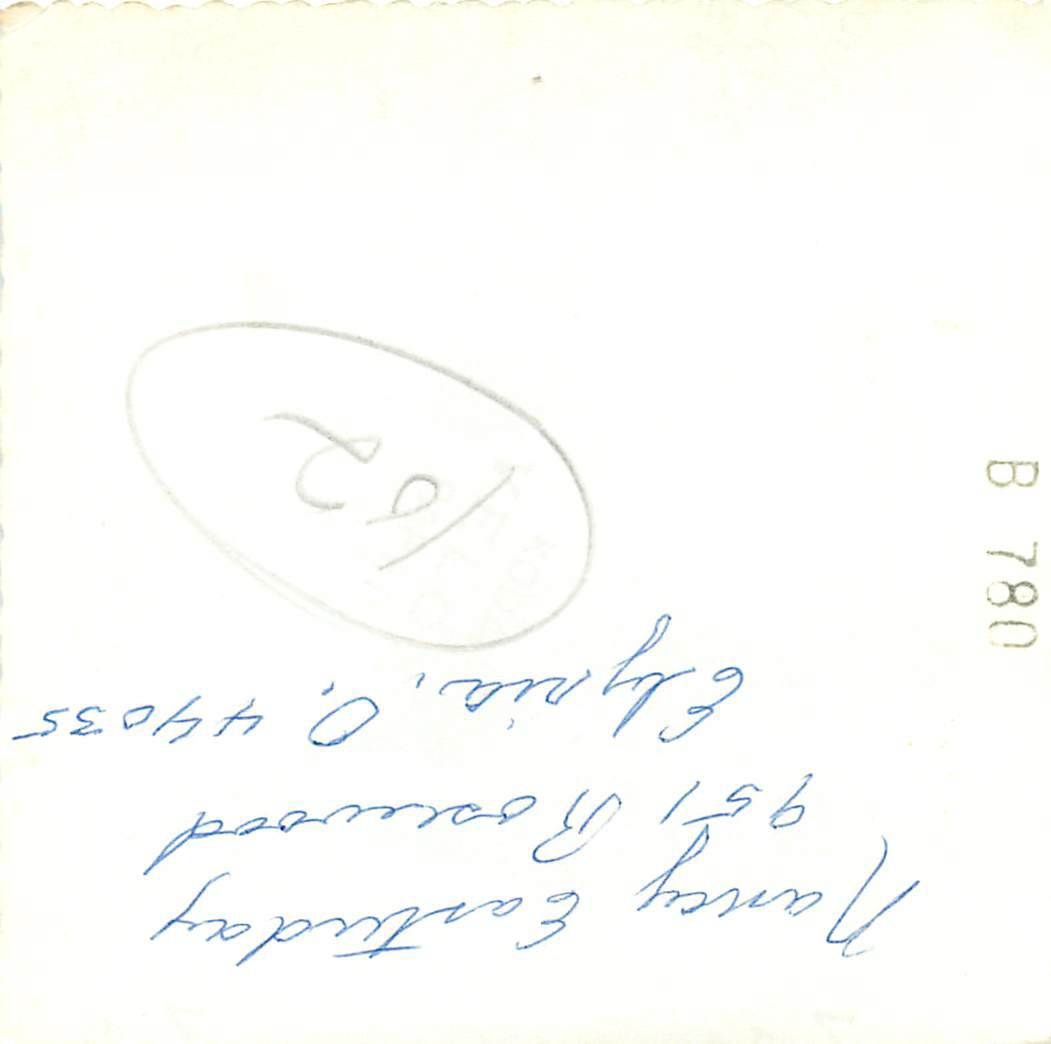 Nancy Easterday
951 Rosewood
Elyria, O. 44035
162
B 780